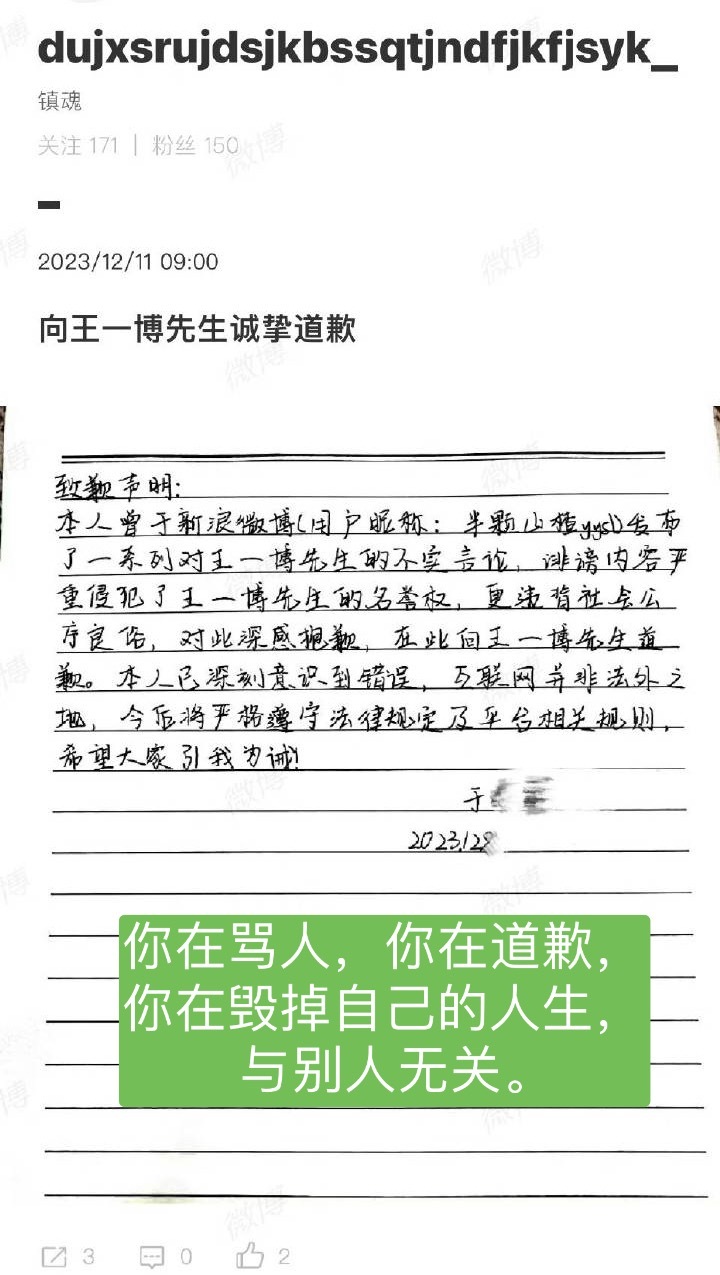 dujxsrujdsjkbssqtjndfjkfjsyk_
镇魂
关注 171 | 粉丝 150
-
2023/12/11 09:00
向王一博先生诚挚道歉
致歉声明:
本人曾于新浪微博(用户昵称: 半颗山楂yysl)发布
了一系列对王一博先生的不实言论, 诽谤内容严
重侵犯了王一博先生的名誉权, 更违背社会公
序良俗, 对此深感抱歉, 在此向王一博先生道
歉。本人已深刻意识到错误, 互联网并非法外之
地, 今后将严格遵守法律规定及平台相关规则,
希望大家引我为诫!
于
2023.12
你在骂人，你在道歉，
你在毁掉自己的人生，
与别人无关。
3 0 2
微博